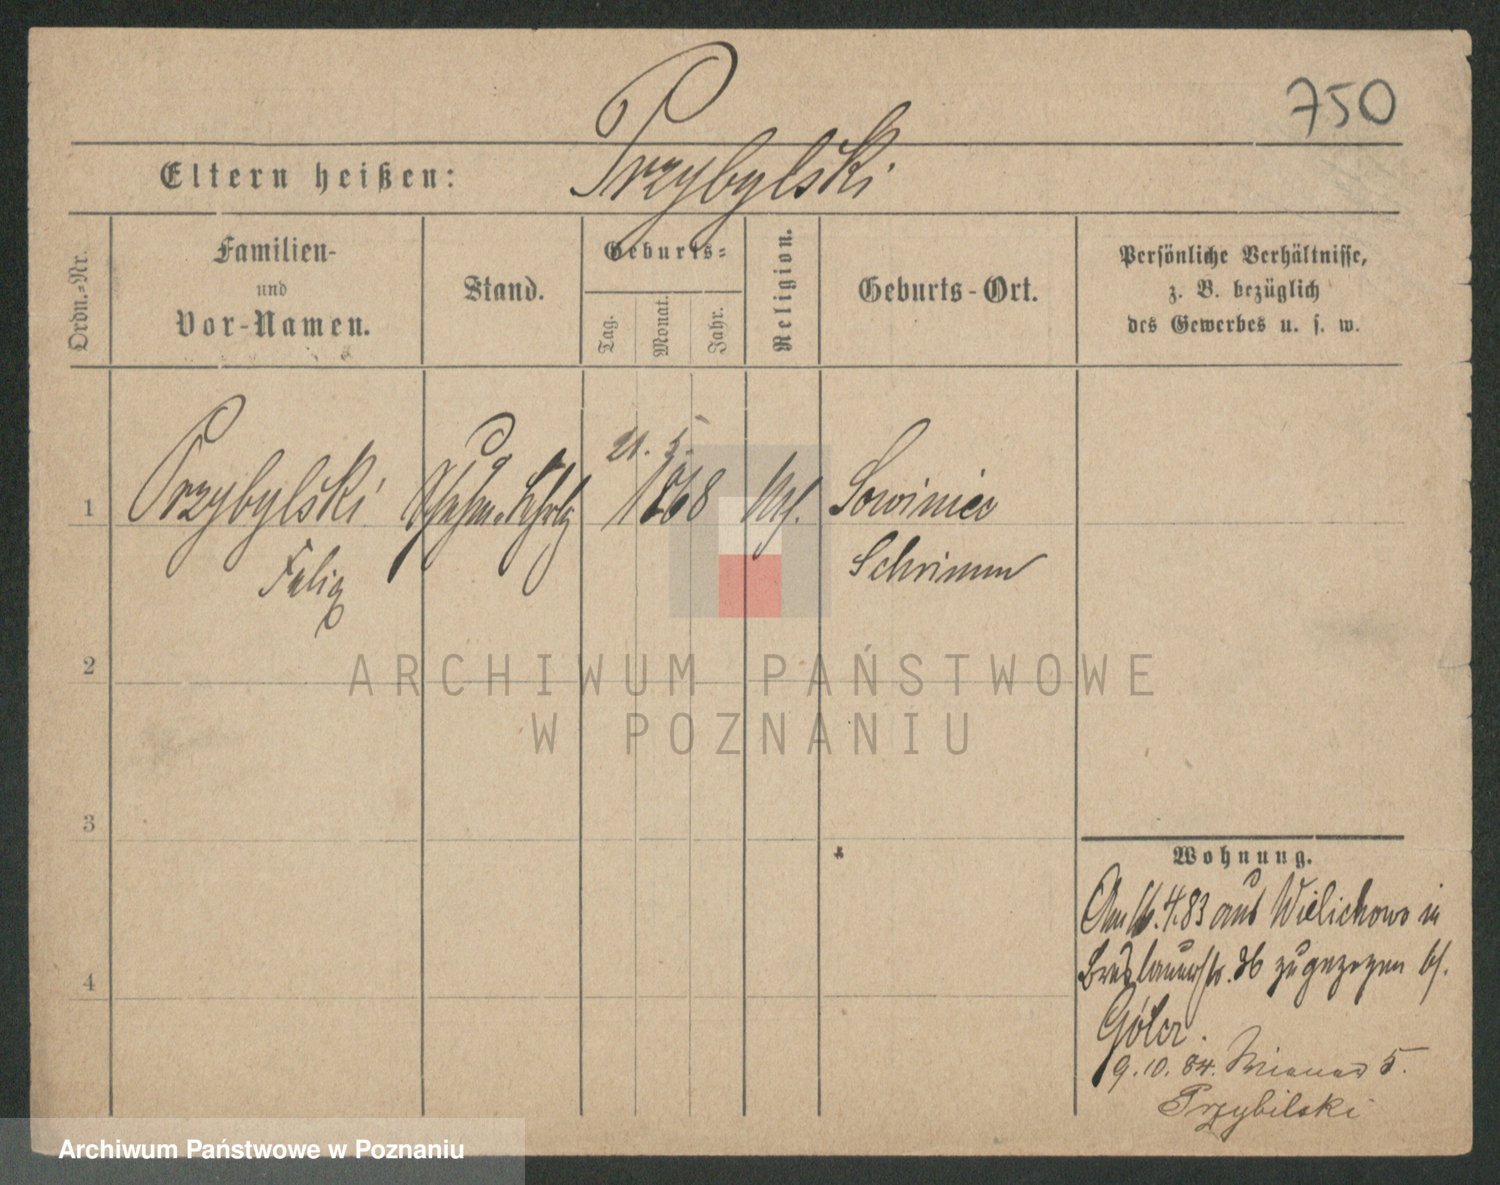 750
Przybylski
Eltern heißen:
Ordn.-Nr.
Familien-
und
Vor-Namen.
Stand.
Geburts-
Tag.
Monat.
Jahr.
Religion.
Geburts-Ort.
Persönliche Verhältnisse,
z. B. bezüglich
des Gewerbes u. s. w.
1
Przybylski
Felix
21. 5.
1868
Sowiniec
Schrimm
2
ARCHIWUM PAŃSTWOWE
W POZNANIU
3
4
Wohnung.
Am 16.4.83 aus Wielichowo in
Breslauerstr. 36 zugezogen bf.
9.10.84. 5.
Przybilski
Archiwum Państwowe w Poznaniu